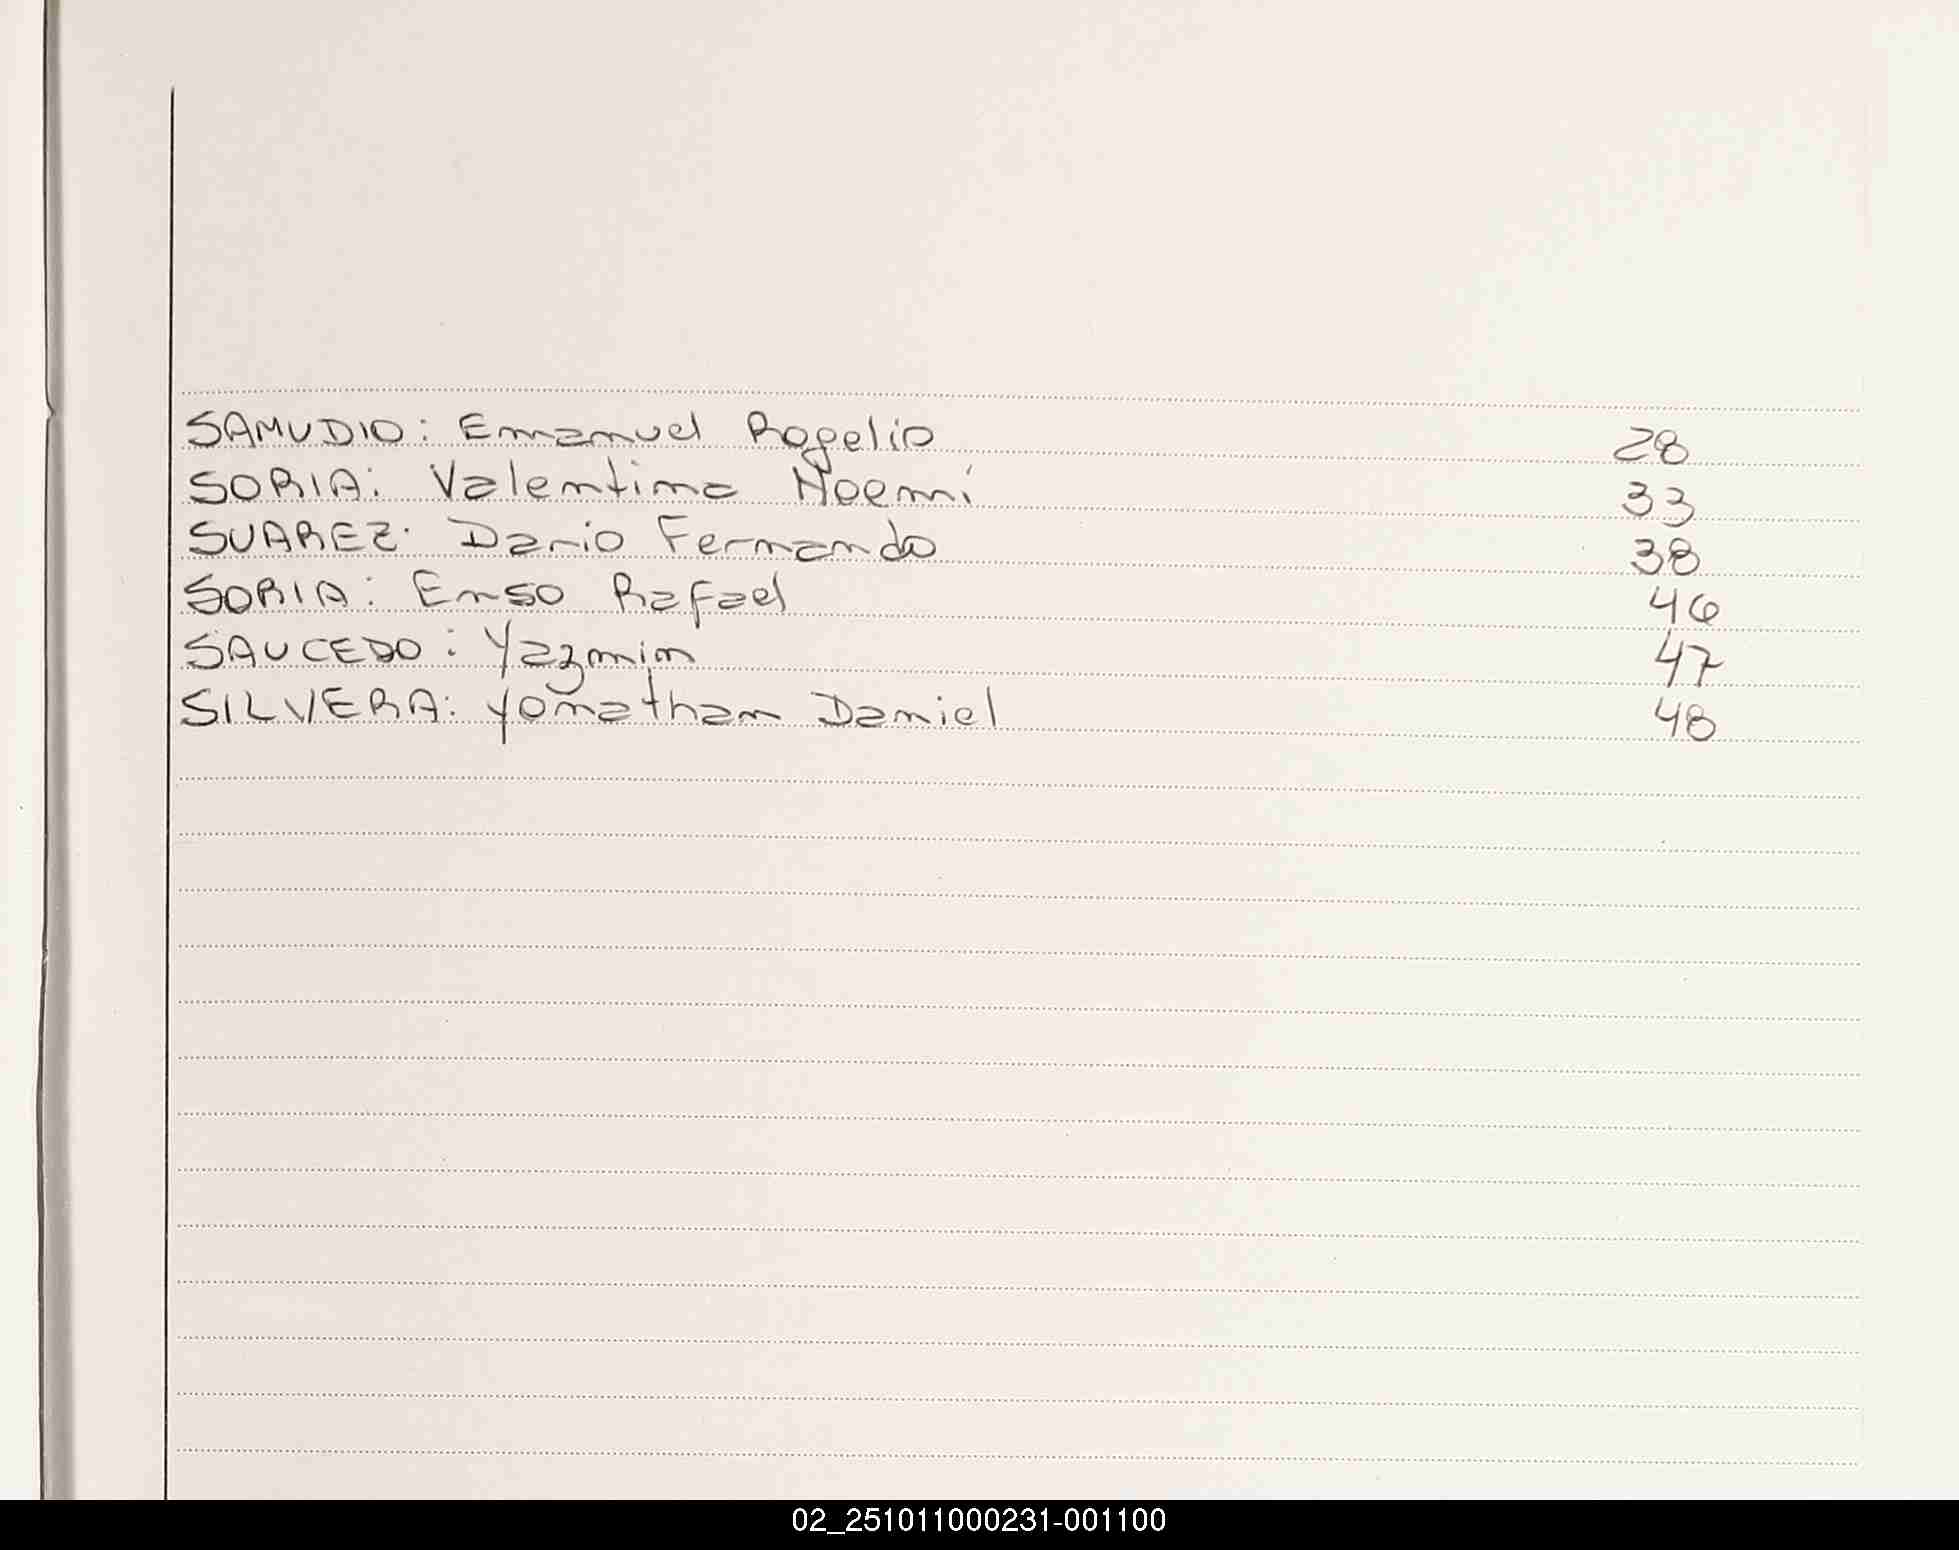 SAMUDIO: Emanuel Rogelio 28
SORIA: Valentina Noemí 33
SUAREZ: Dario Fernando 38
SORIA: Enso Rafael 46
SAUCEDO: Yazmin 47
SILVERA: Yonathan Daniel 48
02_251011000231-001100